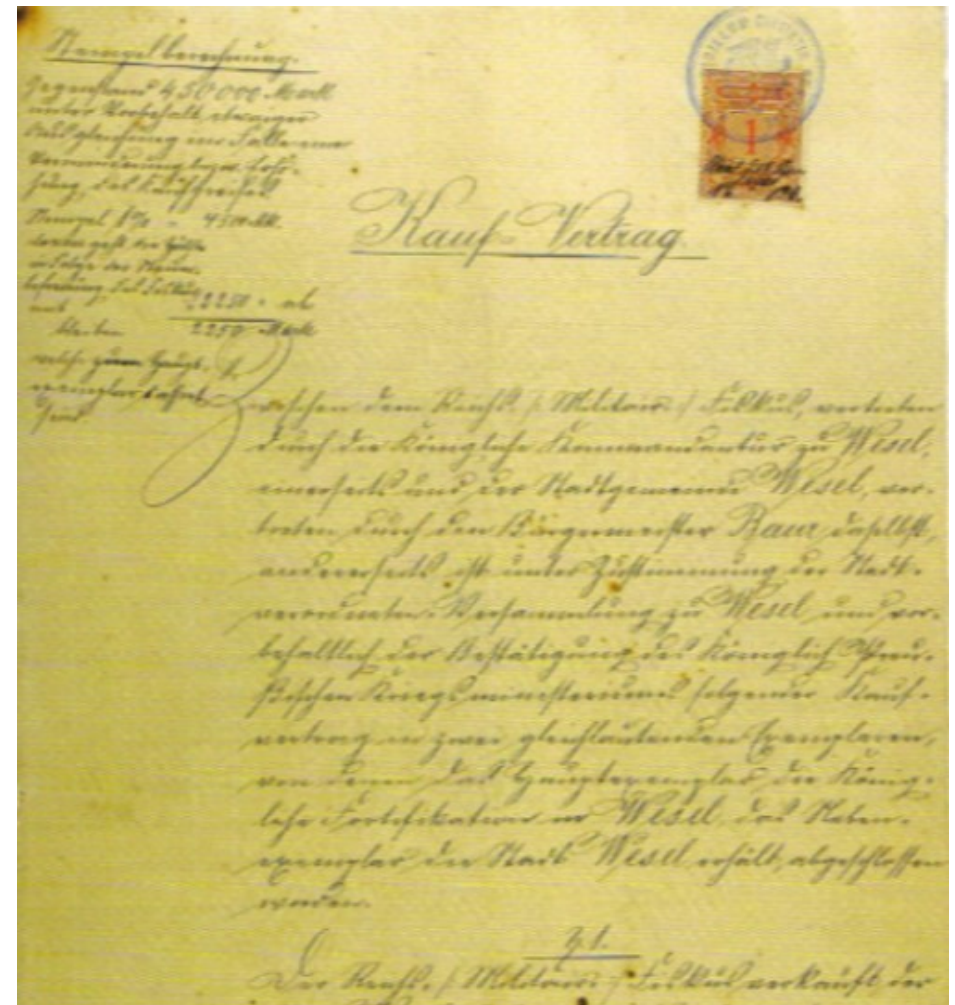 Stempelberechnung.
Gegenstand 450000 Mark
unter Vorbehalt etwaiger
Ausgleichung im Falle einer
Verminderung bezw. Erhö-
hung des Kaufpreises
Stempel 1% = 4500 Mk.
davon geht die Hälfte
infolge der Stempel-
befreiung des Fiskus
mit 2250 " ab
bleiben 2250 Mark
welche zum Haupt-
exemplar kassirt
sind.
1
Kauf-Vertrag.
Zwischen dem Reichs-/:Militair:/Fiskus, vertreten
durch die Königliche Kommandantur zu Wesel,
einerseits und der Stadtgemeinde Wesel, ver-
treten durch den Bürgermeister Baur daselbst,
andererseits ist unter Zustimmung der Stadt-
verordneten-Versammlung zu Wesel und vor-
behaltlich der Bestätigung des Königlich Preu-
ßischen Kriegsministeriums folgender Kauf-
vertrag in zwei gleichlautenden Exemplaren,
von denen das Hauptexemplar die König-
liche Fortifikation in Wesel, das Neben-
exemplar die Stadt Wesel erhält, abgeschlossen
worden.
§ 1.
Der Reichs-/:Militair:/Fiskus verkauft der